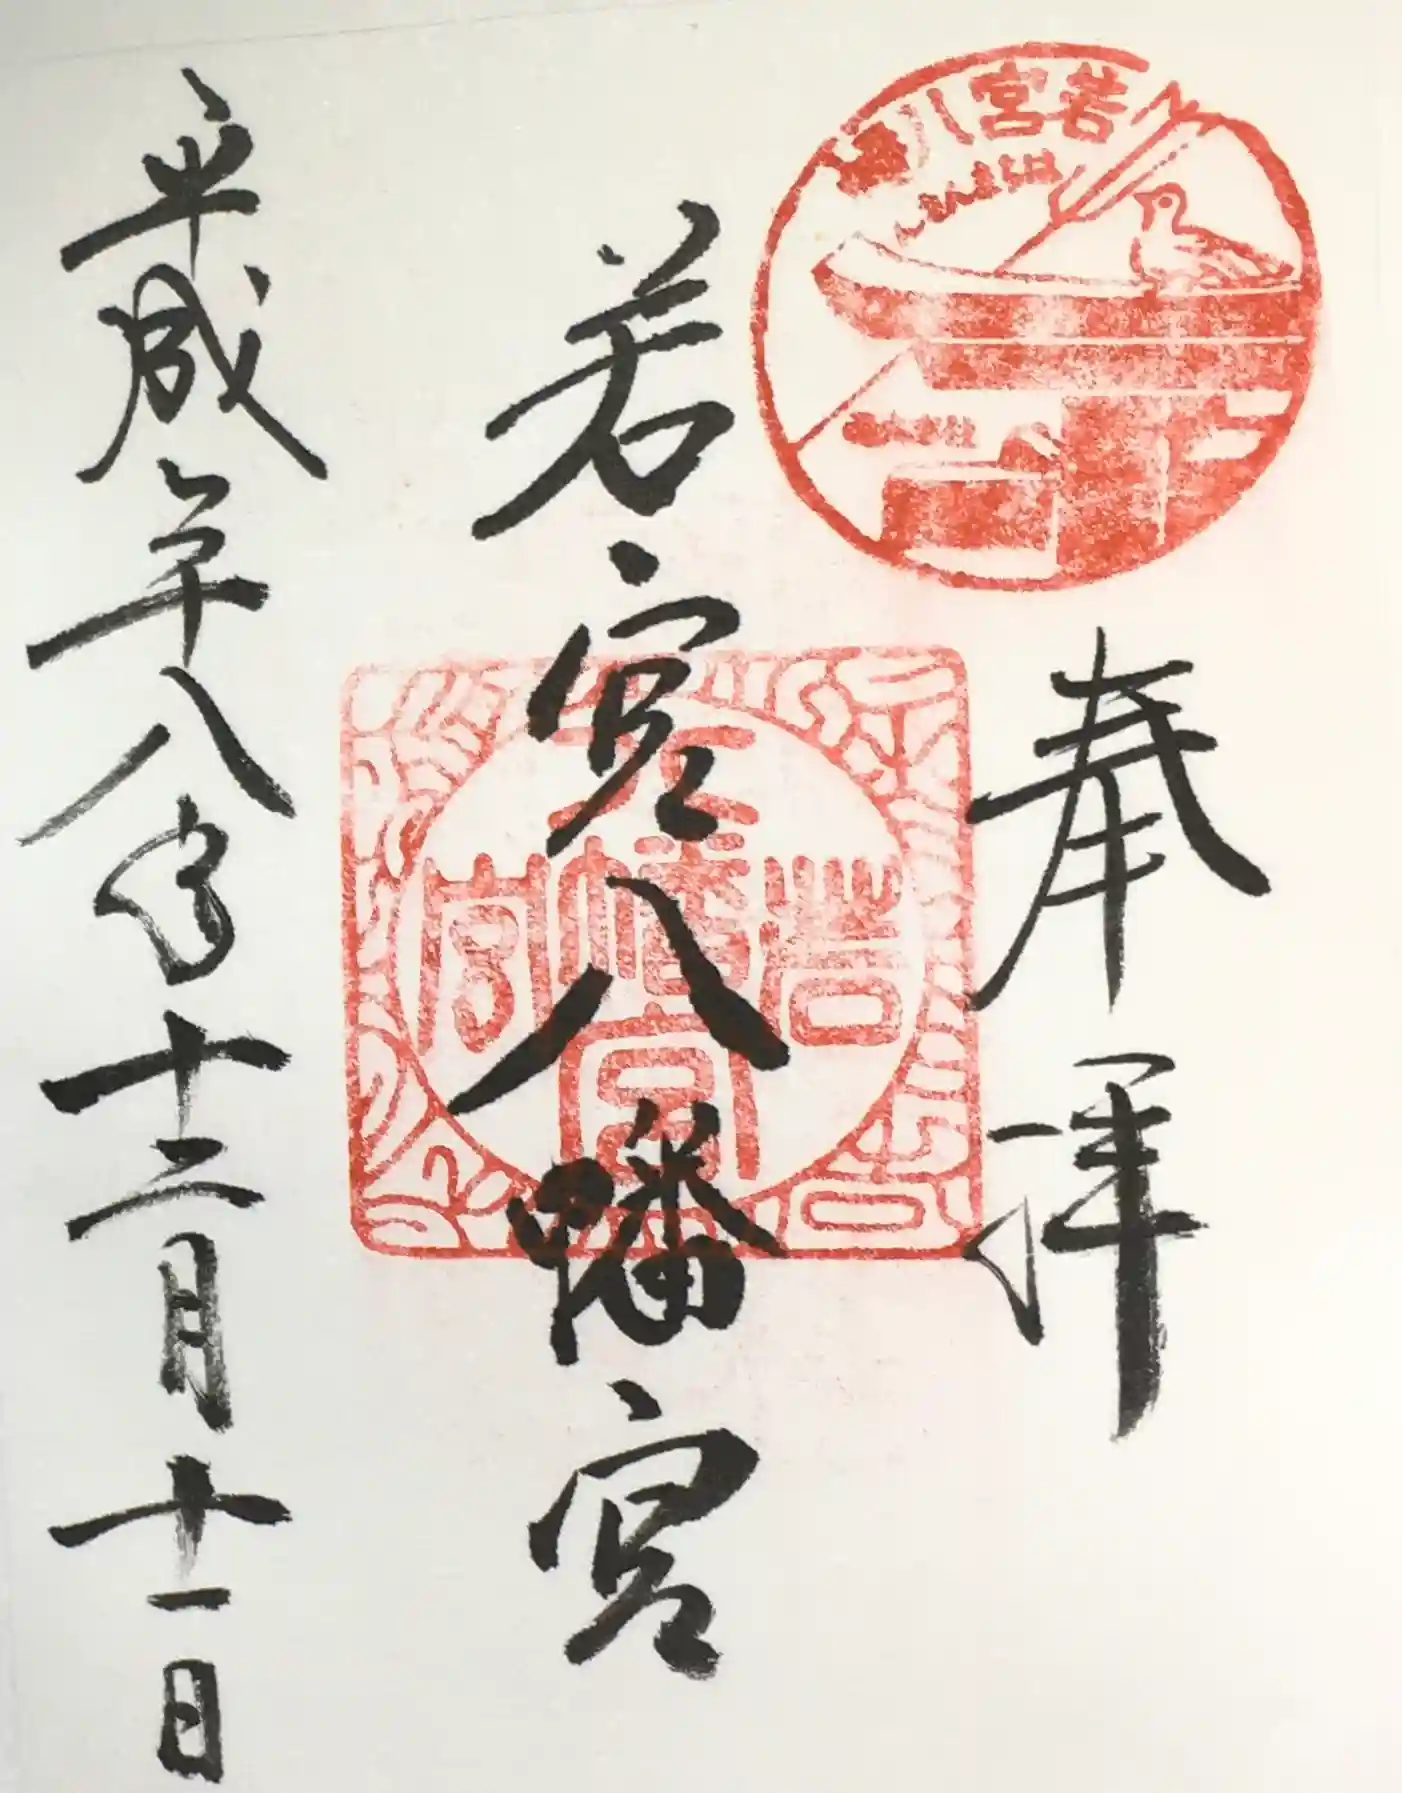 若宮八幡
奉拝
若宮八幡宮
平成二十八年十二月十一日